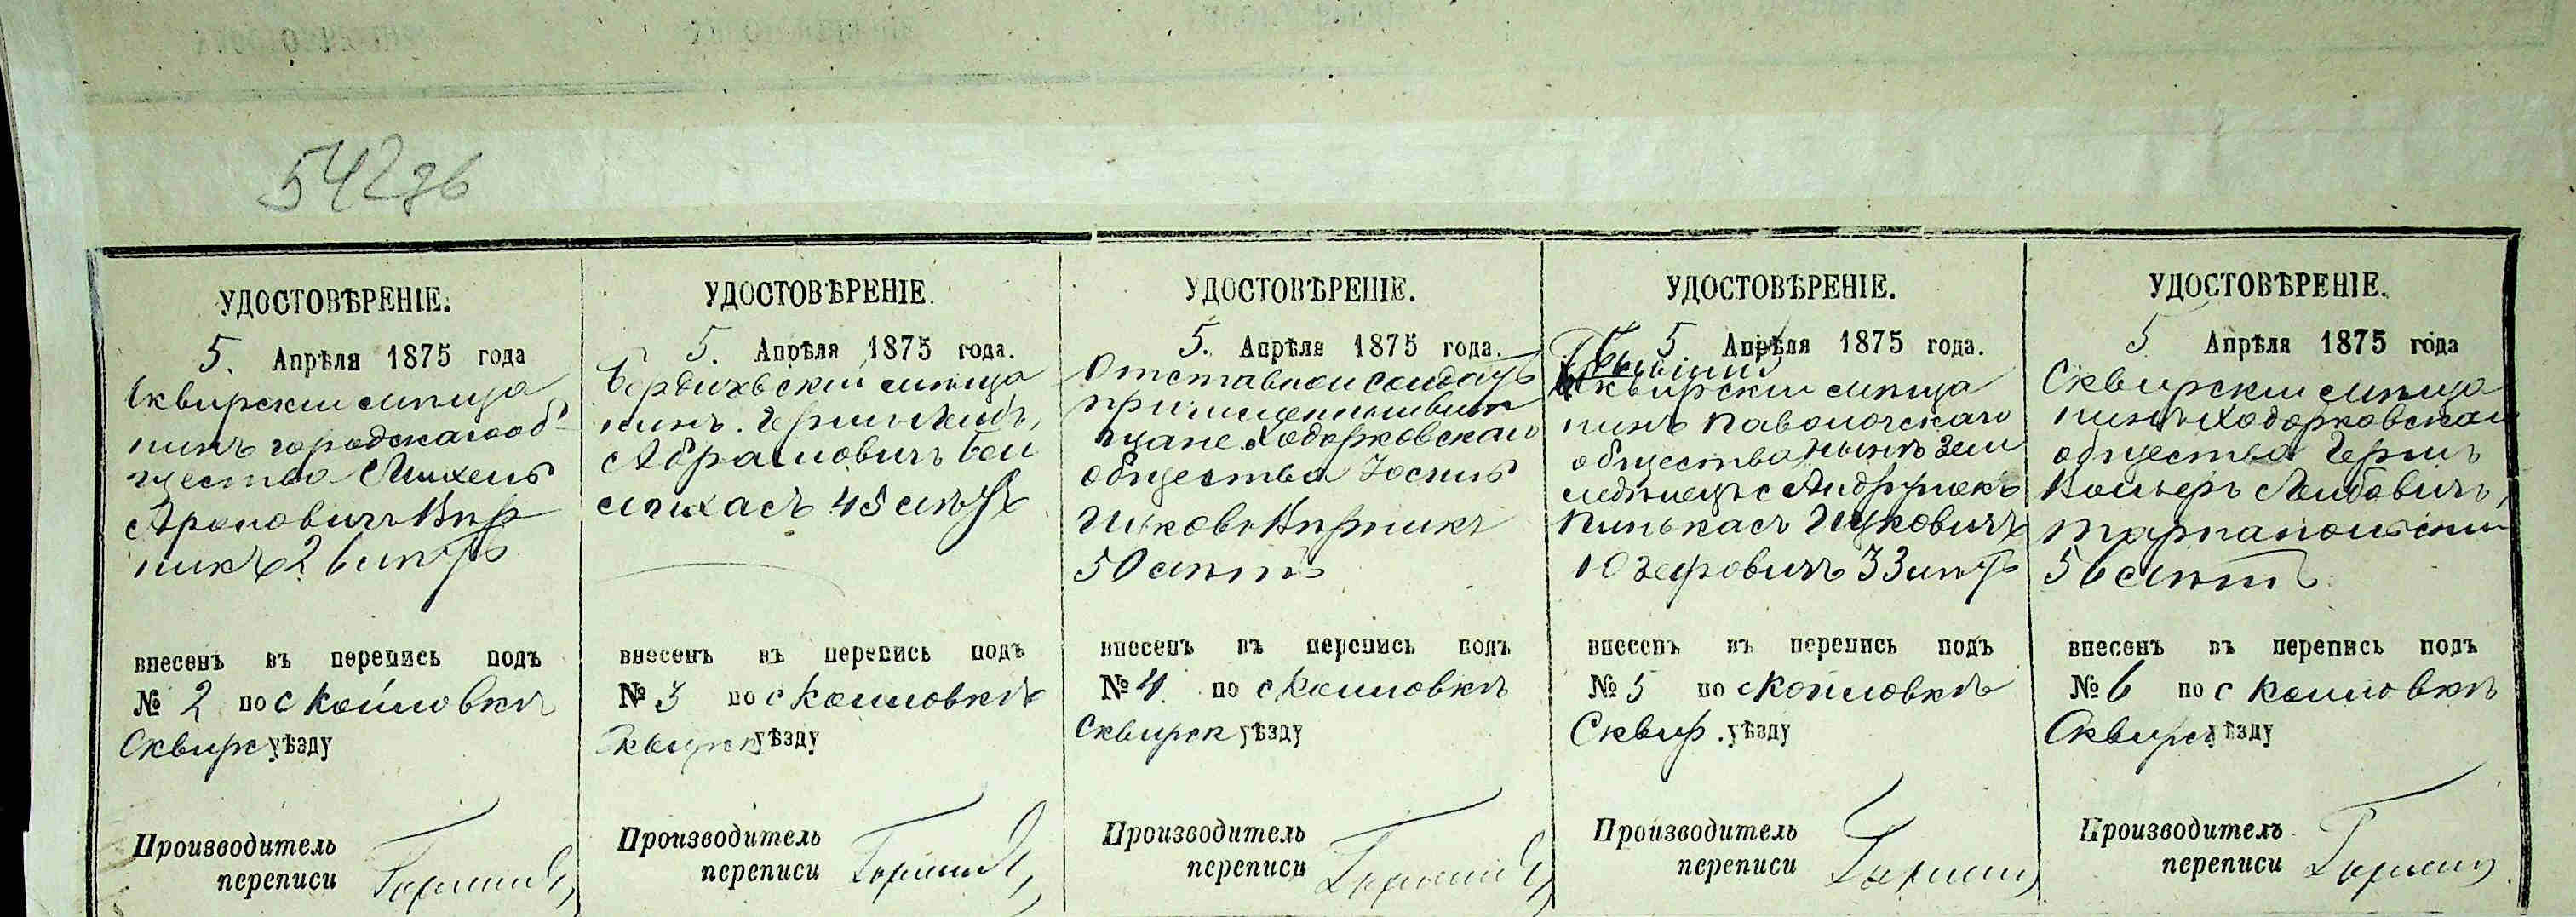 542зв
УДОСТОВѢРЕНІЕ.
5. Апрѣля 1875 года
Сквирскій мѣща
нинъ городскаго об-
щества Михель
Ароновичъ Кир
никъ 26 лѣтъ
внесенъ въ перепись подъ
№ 2 по с Койловкѣ
Сквирс уѣзду
Производитель
переписи
УДОСТОВѢРЕНІЕ.
5. Апрѣля 1875 года.
Бердичевскій мѣща
нинъ Герш Лейбъ
Абрамовичъ Бей
45 лѣтъ
внесенъ въ перепись подъ
№ 3 по с Койловкѣ
Сквирск уѣзду
Производитель
переписи
УДОСТОВѢРЕНІЕ.
5. Апрѣля 1875 года.
Отставной солдатъ
мѣ
щане Ходорковскаго
общества Іоспъ
Ицковъ Кирникъ
50 лѣтъ
внесенъ въ перепись подъ
№ 4 по с Койловкѣ
Сквирск уѣзду
Производитель
переписи
УДОСТОВѢРЕНІЕ.
5 Апрѣля 1875 года.
Бывшій
Сквирскій мѣща
нинъ Паволочскаго
общества нынѣ зем
ледѣлецъ с Андрушекъ
Пинькасъ Ицковичъ
Юзефовичъ 33 лѣтъ
внесенъ въ перепись подъ
№ 5 по с Койловкѣ
Сквир. уѣзду
Производитель
переписи
УДОСТОВѢРЕНІЕ.
5 Апрѣля 1875 года
Сквирскій мѣща
нинъ Ходорковскаго
общества Гершъ
Вольфъ Лейбовичъ
Тарнапольскій
56 лѣтъ
внесенъ въ перепись подъ
№ 6 по с Койловкѣ
Сквирск уѣзду
Производитель
переписи